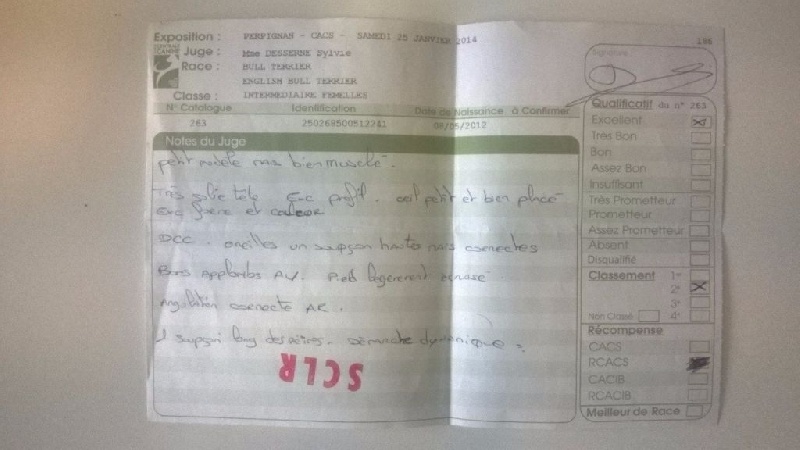 Exposition : PERPIGNAN - CACS - SAMEDI 25 JANVIER 2014
196
CENTRALE CANINE
Juge : Mme DESSERNE Sylvie
Race : BULL TERRIER
ENGLISH BULL TERRIER
Classe : INTERMEDIAIRE FEMELLES
Signature
N° Catalogue Identification Date de Naissance à Confirmer
263 250268500512241 08/05/2012
Notes du Juge
petit modèle mais bien musclé.
Très jolie tête Exc profil. oeil petit et bien placé
Exc et couleur
DCC. oreilles un soupçon hautes mais correctes
Bons Applombs AV. Pieds légèrement
Angulation correcte AR.
1 soupçon long des reins. Démarche dynamique.
SCLR
Qualificatif du n° 263
Excellent
Très Bon
Bon
Assez Bon
Insuffisant
Très Prometteur
Prometteur
Assez Prometteur
Absent
Disqualifié
Classement 1er
2e
3e
Non Classé 4e
Récompense
CACS
RCACS
CACIB
RCACIB
Meilleur de Race